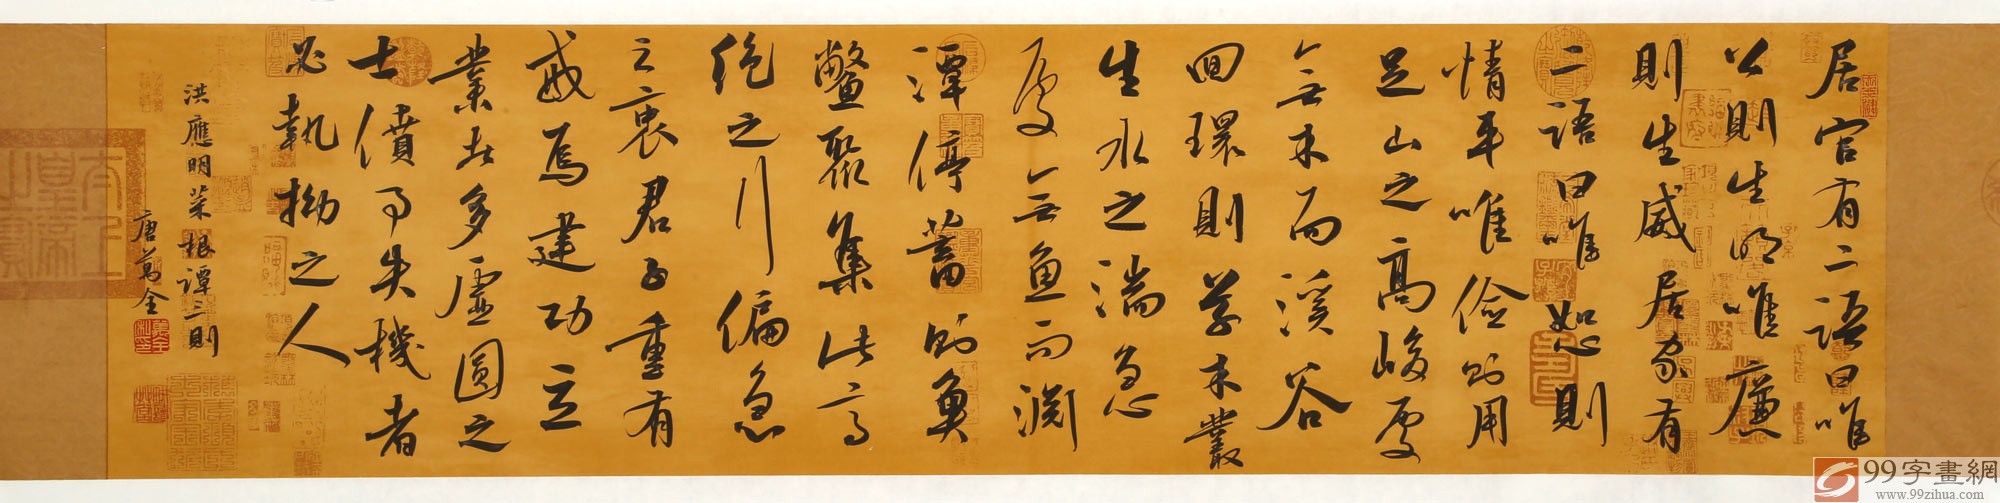 居官有二語曰唯
公則生明唯廉
則生威居家有
二語曰唯恕則
情平唯儉則用
足山之高峻處
無木而溪谷
回環則草木叢
生水之湍急
處無魚而淵
潭停蓄則魚
鱉聚集此高
絕之行褊急
之衷君子重有
戒焉建功立
業者多虛圓之
士僨事失機者
必執拗之人
洪應明菜根譚三則
唐萬全
99字畫網
www.99zihua.com